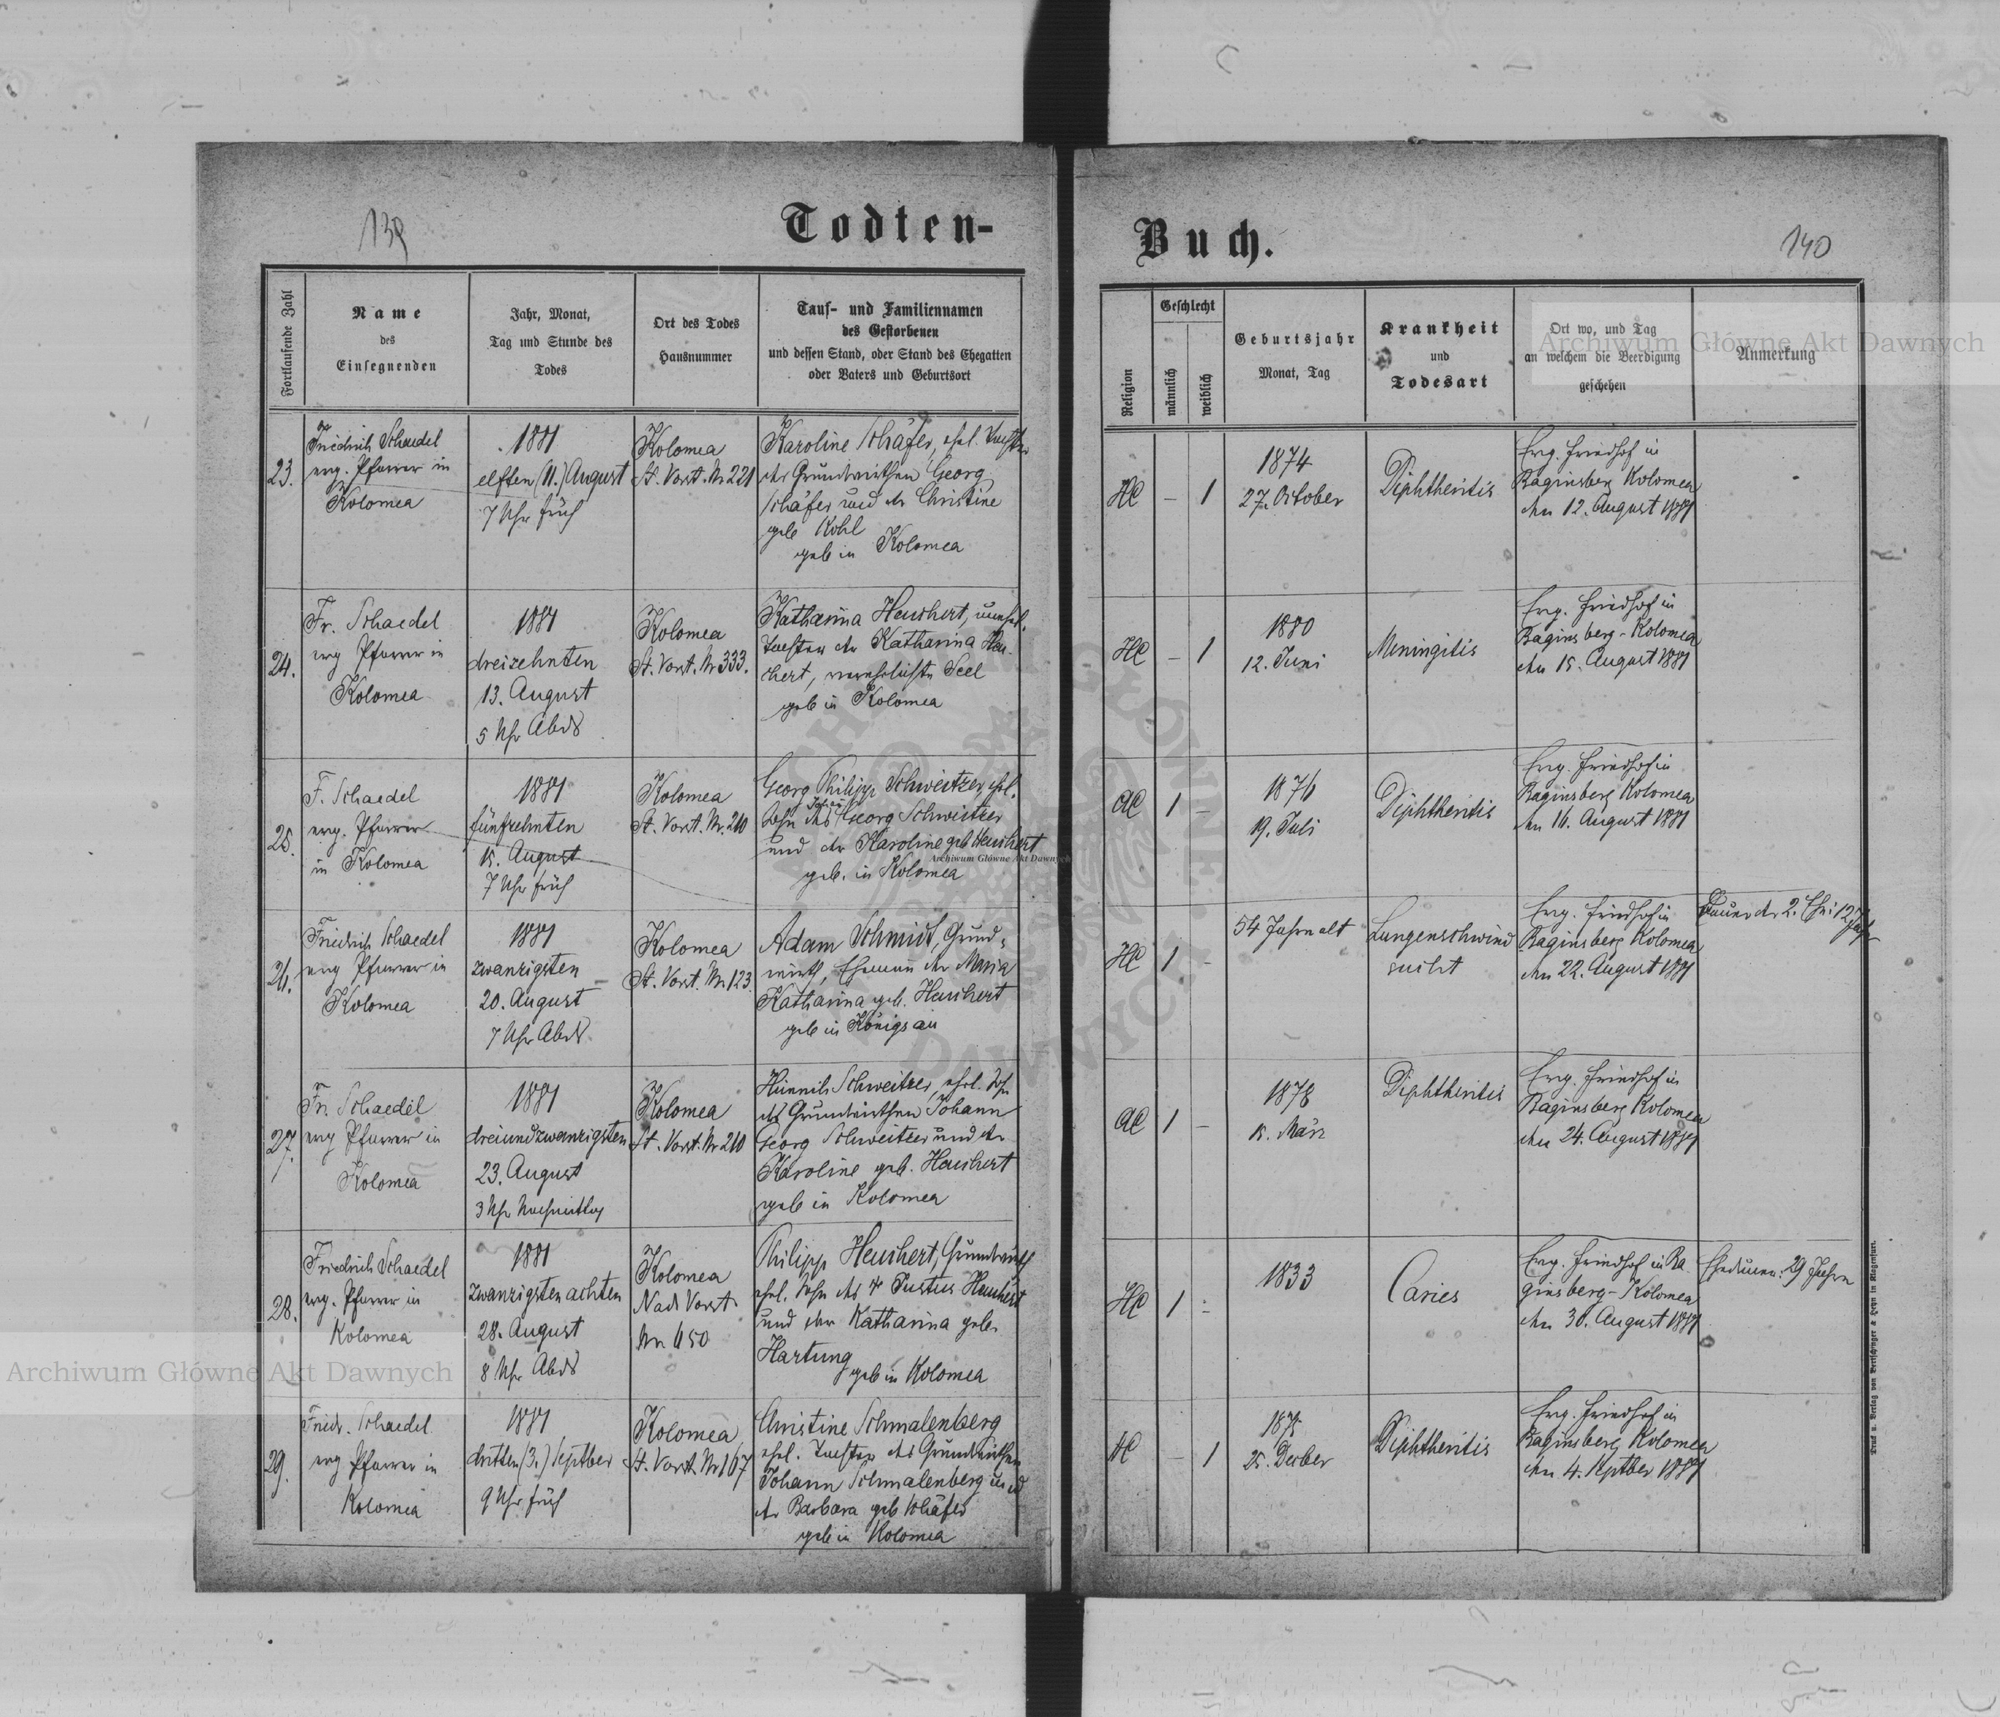 139
Todten-
Fortlaufende Zahl
Name
des
Einsegnenden
Jahr, Monat,
Tag und Stunde des
Todes
Ort des Todes
Hausnummer
Tauf- und Familiennamen
des Gestorbenen
und dessen Stand, oder Stand des Ehegatten
oder Vaters und Geburtsort
23.
Friedrich Schaedel
evg. Pfarrer in
Kolomea
1881
elften (11.) August
7 Uhr früh
Kolomea
St. Vorst. Nr 221
Karoline Schäfer, ehel. Tochter
des Grundwirthen Georg
Schäfer und der Christine
geb Kohl
geb in Kolomea
24.
Fr. Schaedel
evg Pfarrer in
Kolomea
1881
dreizehnten
13. August
5 Uhr Abds
Kolomea
St. Vorst. Nr 333.
Katharina Heuchert, unehel.
Tochter der Katharina Heu-
chert, verehelichte Seel
geb in Kolomea
25.
F. Schaedel
evg. Pfarrer
in Kolomea
1881
fünfzehnten
15. August
7 Uhr früh
Kolomea
St. Vorst. Nr. 210
Georg Philipp Schweitzer, ehel.
Johann
Sohn des Georg Schweitzer
und der Karoline geb Heuchert
geb. in Kolomea
26.
Friedrich Schaedel
evg Pfarrer in
Kolomea
1881
zwanzigsten
20. August
7 Uhr Abds.
Kolomea
St. Vorst. Nr 123.
Adam Schmidt, Grund-
wirth, Ehemann der Maria
Katharina geb. Heuchert
geb in Königsau
27.
Fr. Schaedel
evg Pfarrer in
Kolomea
1881
dreiundzwanzigsten
23. August
3 Uhr Nachmittag
Kolomea
St. Vorst. Nr 210
Heinrich Schweitzer, ehel. Sohn
des Grundwirthen Johann
Georg Schweitzer und der
Karoline geb. Heuchert
geb in Kolomea
28.
Friedrich Schaedel
evg. Pfarrer in
Kolomea
1881
zwanzigsten achten
28. August
8 Uhr Abds
Kolomea
Nad. Vorst.
Nr 650
Philipp Heuchert, Grundwirth
ehel. Sohn des † Justus Heuchert
und der Katharina geb.
Hartung
geb in Kolomea
29.
Friedr. Schaedel.
evg Pfarrer in
Kolomea
1881
dritten (3.) Septber
9 Uhr früh
Kolomea
St. Vorst. Nr 167
Christine Schmalenberg
ehel. Tochter des Grundwirthen
Johann Schmalenberg und
der Barbara geb Schäfer
geb in Kolomea
Buch.
140
Religion
Geschlecht
männlich
weiblich
Geburtsjahr
Monat, Tag
Krankheit
und
Todesart
Ort wo, und Tag
an welchem die Beerdigung
geschehen
Anmerkung
HC
–
1
1874
27. October
Diphtheritis
Evg. Friedhof in
Baginsberg Kolomea
den 12. August 1881
HC
–
1
1880
12. Juni
Meningitis
Evg. Friedhof in
Baginsberg-Kolomea
den 15. August 1881
AC
1
–
1876
19. Juli
Diphtheritis
Evg. Friedhof in
Baginsberg Kolomea
den 16. August 1881
HC
1
–
54 Jahre alt
Lungenschwind
sucht
Evg. Friedhof in
Baginsberg Kolomea
den 22. August 1881
Dauer der 2. Ehe: 12 Jahr
AC
1
–
1878
15. März
Diphtheritis
Evg. Friedhof in
Baginsberg Kolomea
den 24. August 1881
HC
1
–
1833
Caries
Evg. Friedhof in Ba
ginsberg-Kolomea
den 30. August 1881
Ehedauer: 29 Jahre
HC
–
1
1875
25. Decber
Diphtheritis
Evg. Friedhof in
Baginsberg Kolomea
den 4. Septber 1881
Druck u. Verlag von Bertschinger & Heyn in Klagenfurt.
Archiwum Główne Akt Dawnych
Archiwum Główne Akt Dawnych
Archiwum Główne Akt Dawnych